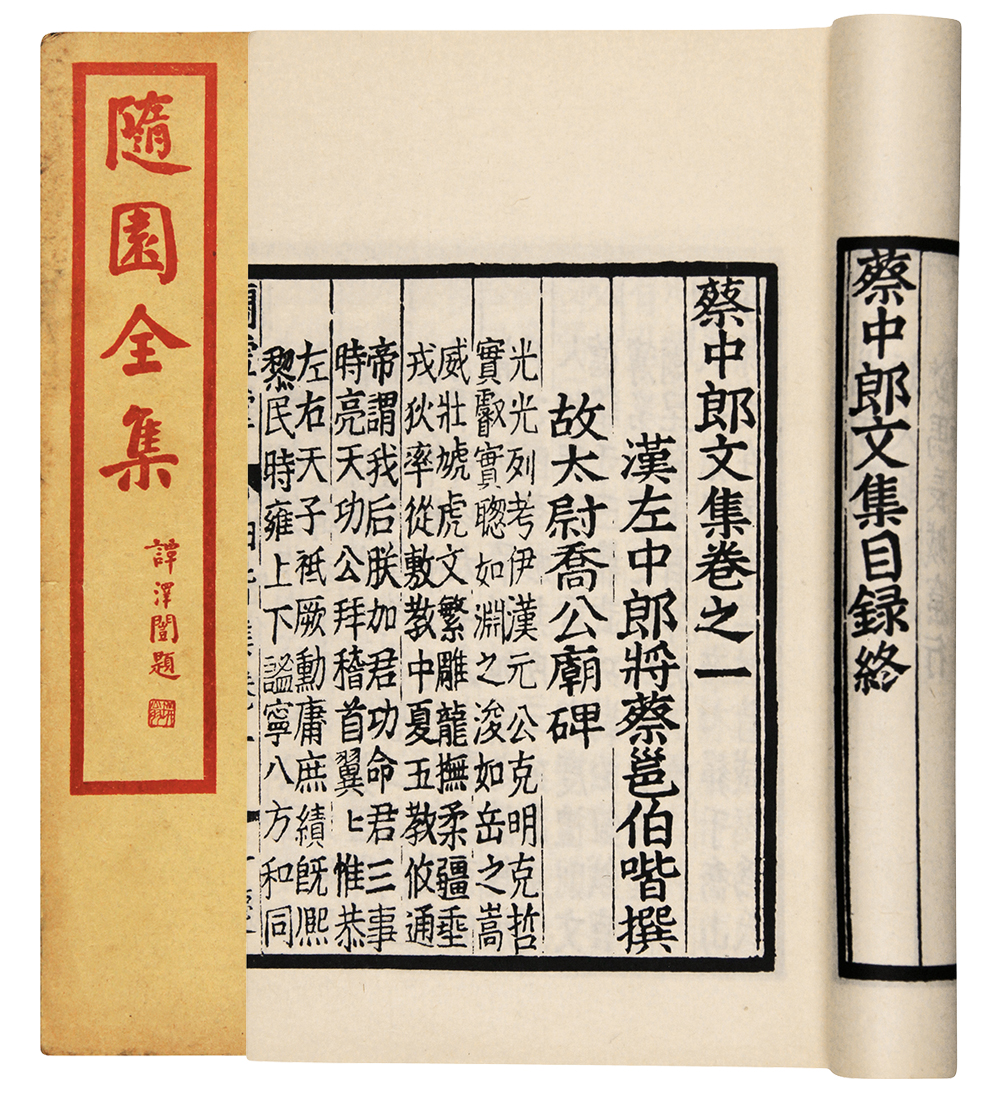 蔡中郎文集目録終
蔡中郎文集卷之一
漢左中郎將蔡邕伯喈撰
故太尉喬公廟碑
光光列考伊漢元公克明克哲
實叡實聦如淵之浚如岳之嵩
威壯虓虎文繁雕龍撫柔疆垂
戎狄率從敷教中夏五教攸通
帝謂我后朕加君功命君三事
時亮天功公拜稽首翼〻惟恭
左右天子祗厥勳庸庶績旣熈
黎民時雍上下謐寧八方和同
隨園全集
譚澤闓題